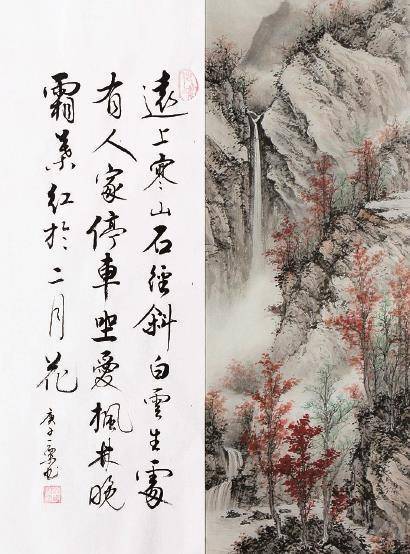 遠上寒山石徑斜白雲生處
有人家停車坐愛楓林晚
霜葉紅於二月花
庚子